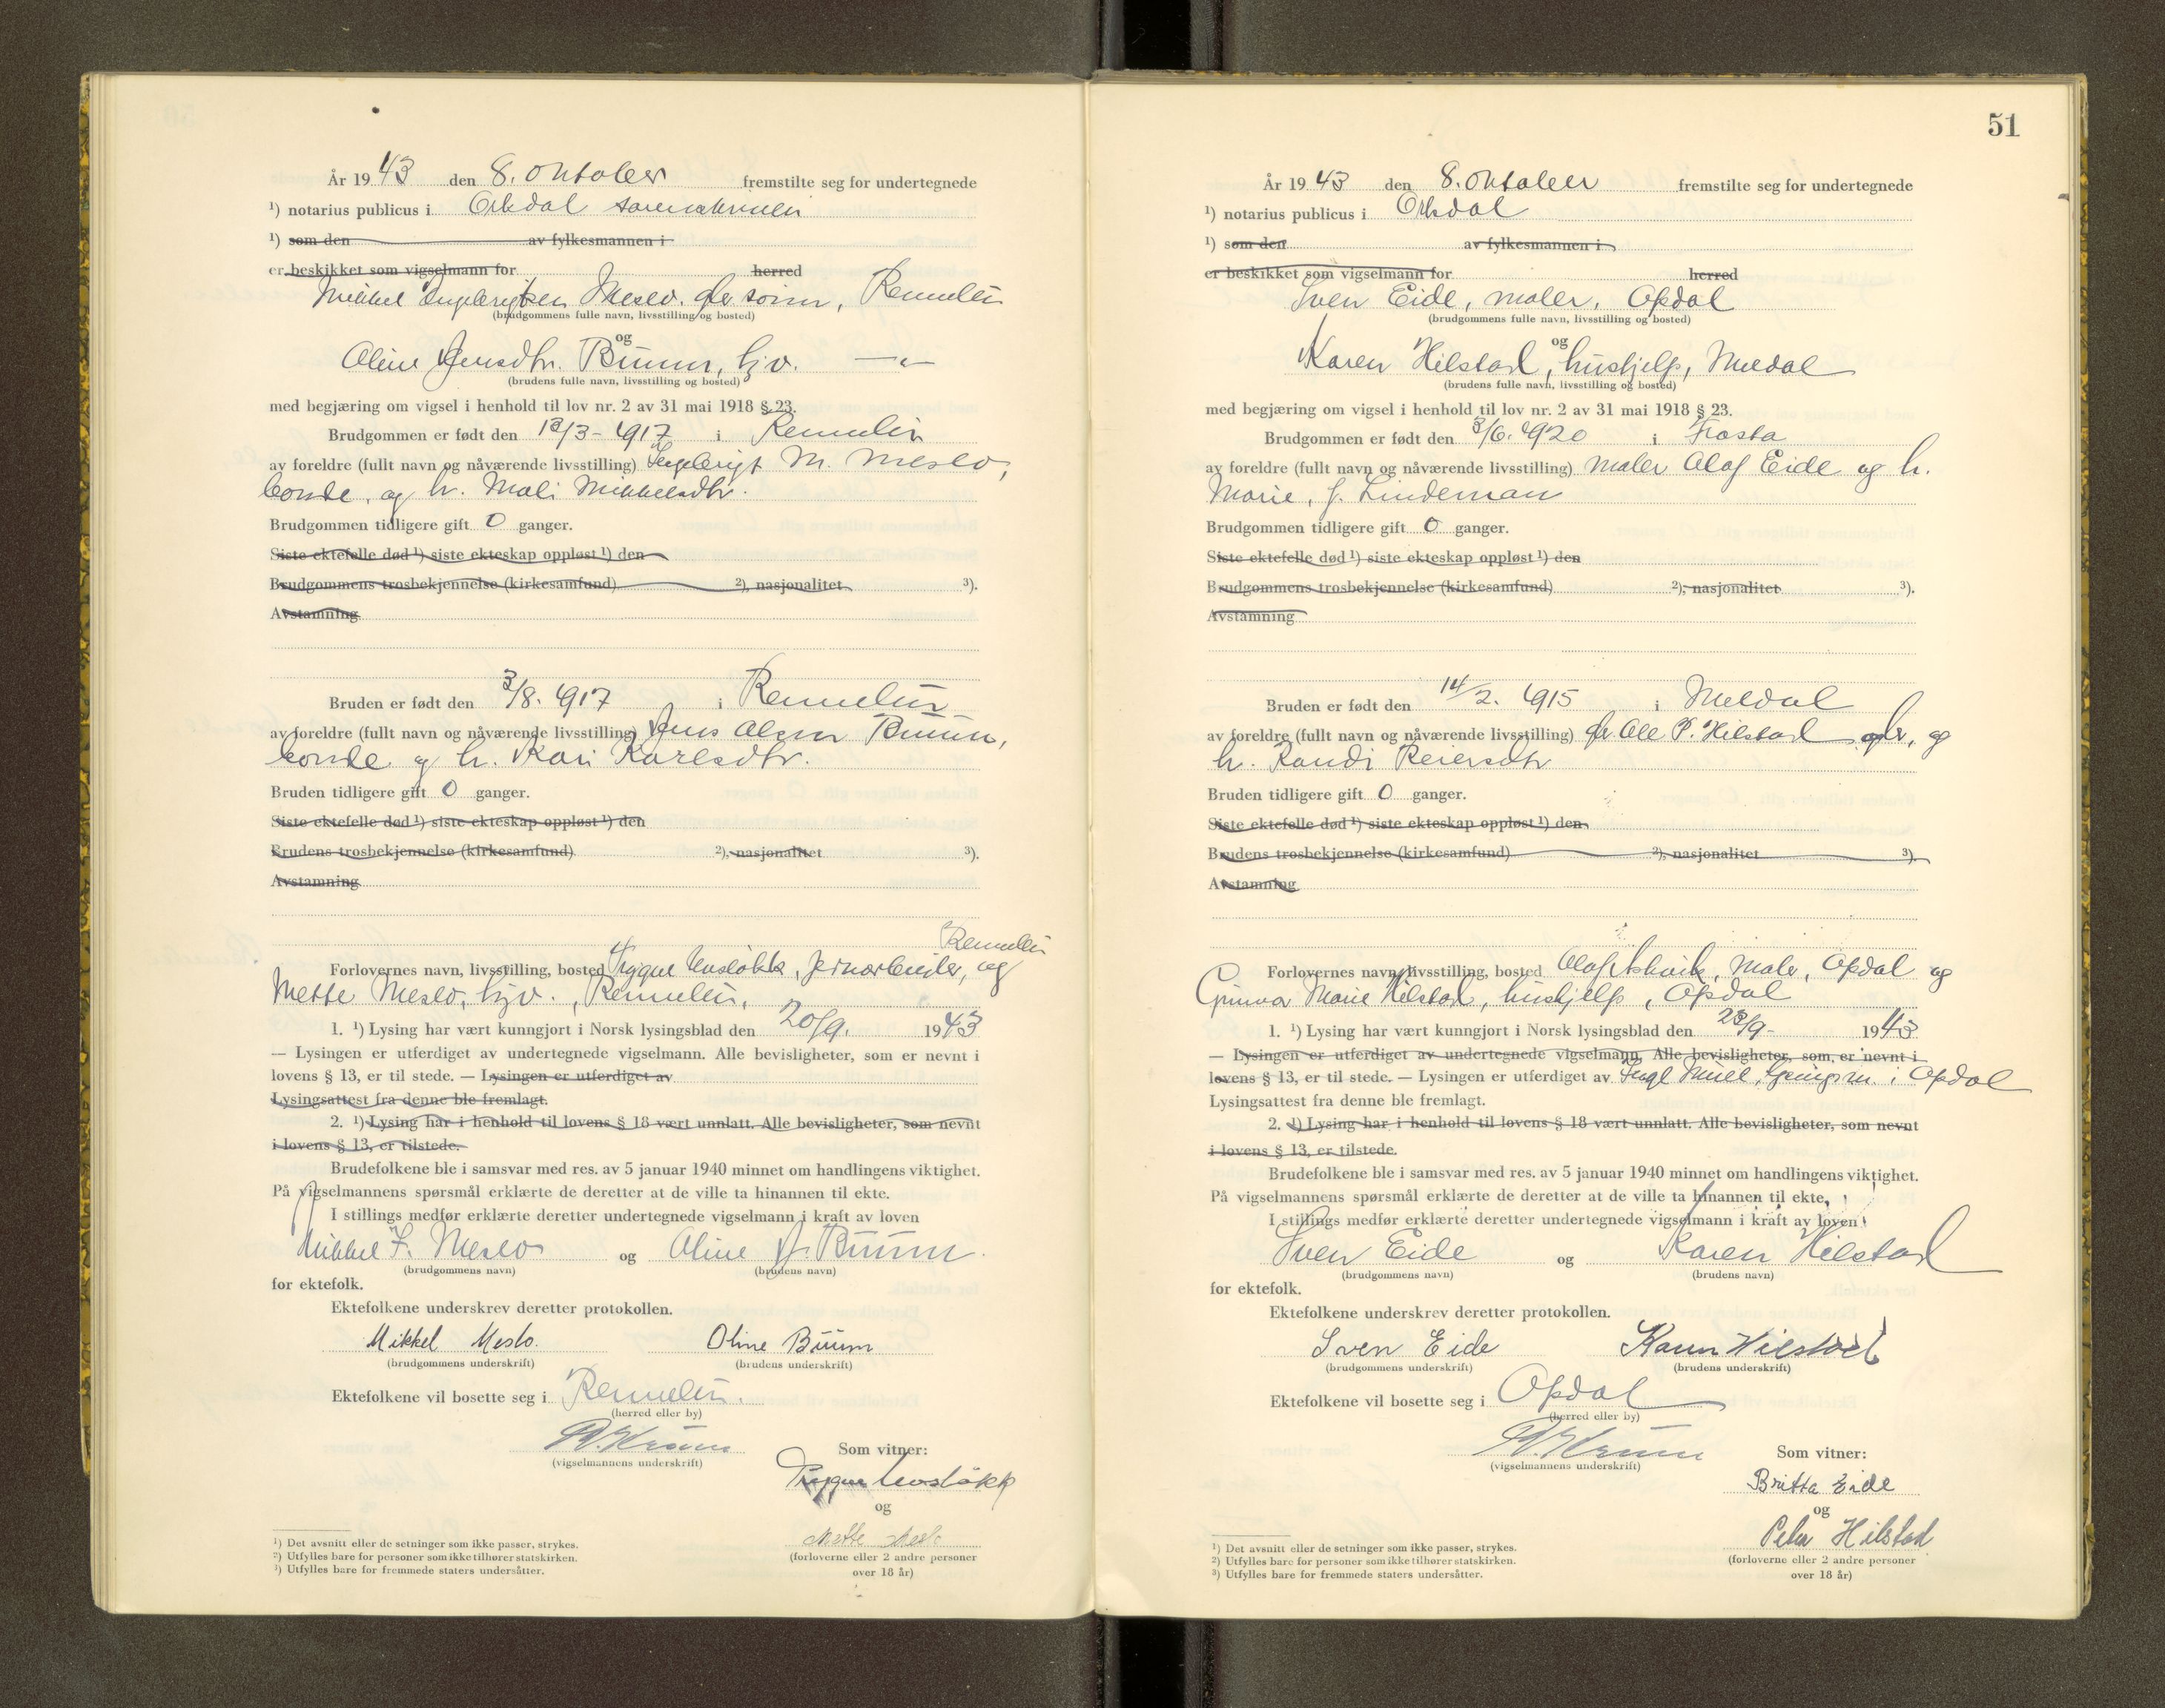 År 1943 den 8. oktober fremstilte seg for undertegnede
¹) notarius publicus i Orkdal sorenskriveri
¹) som den av fylkesmannen i
er beskikket som vigselmann for herred
Mikkel Ingebrigtsen Meslo, gbr sønn, Rennebu
(brudgommens fulle navn, livsstilling og bosted)
og
Oline Jensdtr. Buum, hjv. —"—
(brudens fulle navn, livsstilling og bosted)
med begjæring om vigsel i henhold til lov nr. 2 av 31 mai 1918 § 23.
Brudgommen er født den /3 - 1917 i Rennebu
av foreldre (fullt navn og nåværende livsstilling) Ingebrigt M. Meslo,
bonde, og h. Mali Mikkelsdtr.
Brudgommen tidligere gift 0 ganger.
Siste ektefelle død ¹) siste ekteskap oppløst ¹) den
Brudgommens trosbekjennelse (kirkesamfund) ²), nasjonalitet ³).
Avstamning
Bruden er født den 3/8. 1917 i Rennebu
av foreldre (fullt navn og nåværende livsstilling) Jens Olsen Buum,
bonde og h. Kari Karlsdtr.
Bruden tidligere gift 0 ganger.
Siste ektefelle død ¹) siste ekteskap oppløst ¹) den
Brudens trosbekjennelse (kirkesamfund) ²), nasjonalitet ³).
Avstamning
Rennebu
Forlovernes navn, livsstilling, bosted Trygve Uvsløkk, jernarbeider, og
Mette Meslo, hjv., Rennebu,
1. ¹) Lysing har vært kunngjort i Norsk lysingsblad den 20/9. 1943
— Lysingen er utferdiget av undertegnede vigselmann. Alle bevisligheter, som er nevnt i
lovens § 13, er til stede. — Lysingen er utferdiget av
Lysingsattest fra denne ble fremlagt.
2. ¹) Lysing har i henhold til lovens § 18 vært unnlatt. Alle bevisligheter, som nevnt
i lovens § 13, er tilstede.
Brudefolkene ble i samsvar med res. av 5 januar 1940 minnet om handlingens viktighet.
På vigselmannens spørsmål erklærte de deretter at de ville ta hinannen til ekte.
I stillings medfør erklærte deretter undertegnede vigselmann i kraft av loven
Mikkel I. Meslo og Oline J. Buum.
(brudgommens navn) (brudens navn)
for ektefolk.
Ektefolkene underskrev deretter protokollen.
Mikkel Meslo. Oline Buum
(brudgommens underskrift) (brudens underskrift)
Ektefolkene vil bosette seg i Rennebu.
(herred eller by)
(vigselmannens underskrift)
Som vitner:
Trygve Uvsløkk
og
Mette Meslo
(forloverne eller 2 andre personer
over 18 år)
¹) Det avsnitt eller de setninger som ikke passer, strykes.
²) Utfylles bare for personer som ikke tilhører statskirken.
³) Utfylles bare for fremmede staters undersåtter.
51
År 1943 den 8. oktober fremstilte seg for undertegnede
¹) notarius publicus i Orkdal
¹) som den av fylkesmannen i
er beskikket som vigselmann for herred
Sven Eide, maler, Opdal
(brudgommens fulle navn, livsstilling og bosted)
og
Karen Hilstad, hushjelp, Meldal
(brudens fulle navn, livsstilling og bosted)
med begjæring om vigsel i henhold til lov nr. 2 av 31 mai 1918 § 23.
Brudgommen er født den 3/6. 1920 i Frosta
av foreldre (fullt navn og nåværende livsstilling) maler Olaf Eide og h.
Marie, f. Lindeman
Brudgommen tidligere gift 0 ganger.
Siste ektefelle død ¹) siste ekteskap oppløst ¹) den
Brudgommens trosbekjennelse (kirkesamfund) ²), nasjonalitet ³).
Avstamning
Bruden er født den 14/2. 1915 i Meldal
av foreldre (fullt navn og nåværende livsstilling) gbr Ole P. Hilstad og
h. Randi Reiersdtr
Bruden tidligere gift 0 ganger.
Siste ektefelle død ¹) siste ekteskap oppløst ¹) den
Brudens trosbekjennelse (kirkesamfund) ²), nasjonalitet ³).
Avstamning
Forlovernes navn, livsstilling, bosted Olaf maler, Opdal og
Gunvor Marie Hilstad, hushjelp, Opdal
1. ¹) Lysing har vært kunngjort i Norsk lysingsblad den 23/9- 1943
— Lysingen er utferdiget av undertegnede vigselmann. Alle bevisligheter, som er nevnt i
lovens § 13, er til stede. — Lysingen er utferdiget av i Opdal
Lysingsattest fra denne ble fremlagt.
2. ¹) Lysing har i henhold til lovens § 18 vært unnlatt. Alle bevisligheter, som nevnt
i lovens § 13, er tilstede.
Brudefolkene ble i samsvar med res. av 5 januar 1940 minnet om handlingens viktighet.
På vigselmannens spørsmål erklærte de deretter at de ville ta hinannen til ekte.
I stillings medfør erklærte deretter undertegnede vigselmann i kraft av loven
Sven Eide og Karen Hilstad
(brudgommens navn) (brudens navn)
for ektefolk.
Ektefolkene underskrev deretter protokollen.
Sven Eide Karen Hilstad
(brudgommens underskrift) (brudens underskrift)
Ektefolkene vil bosette seg i Opdal
(herred eller by)
(vigselmannens underskrift)
Som vitner:
Britta Eide
og
Peder Hilstad
(forloverne eller 2 andre personer
over 18 år)
¹) Det avsnitt eller de setninger som ikke passer, strykes.
²) Utfylles bare for personer som ikke tilhører statskirken.
³) Utfylles bare for fremmede staters undersåtter.